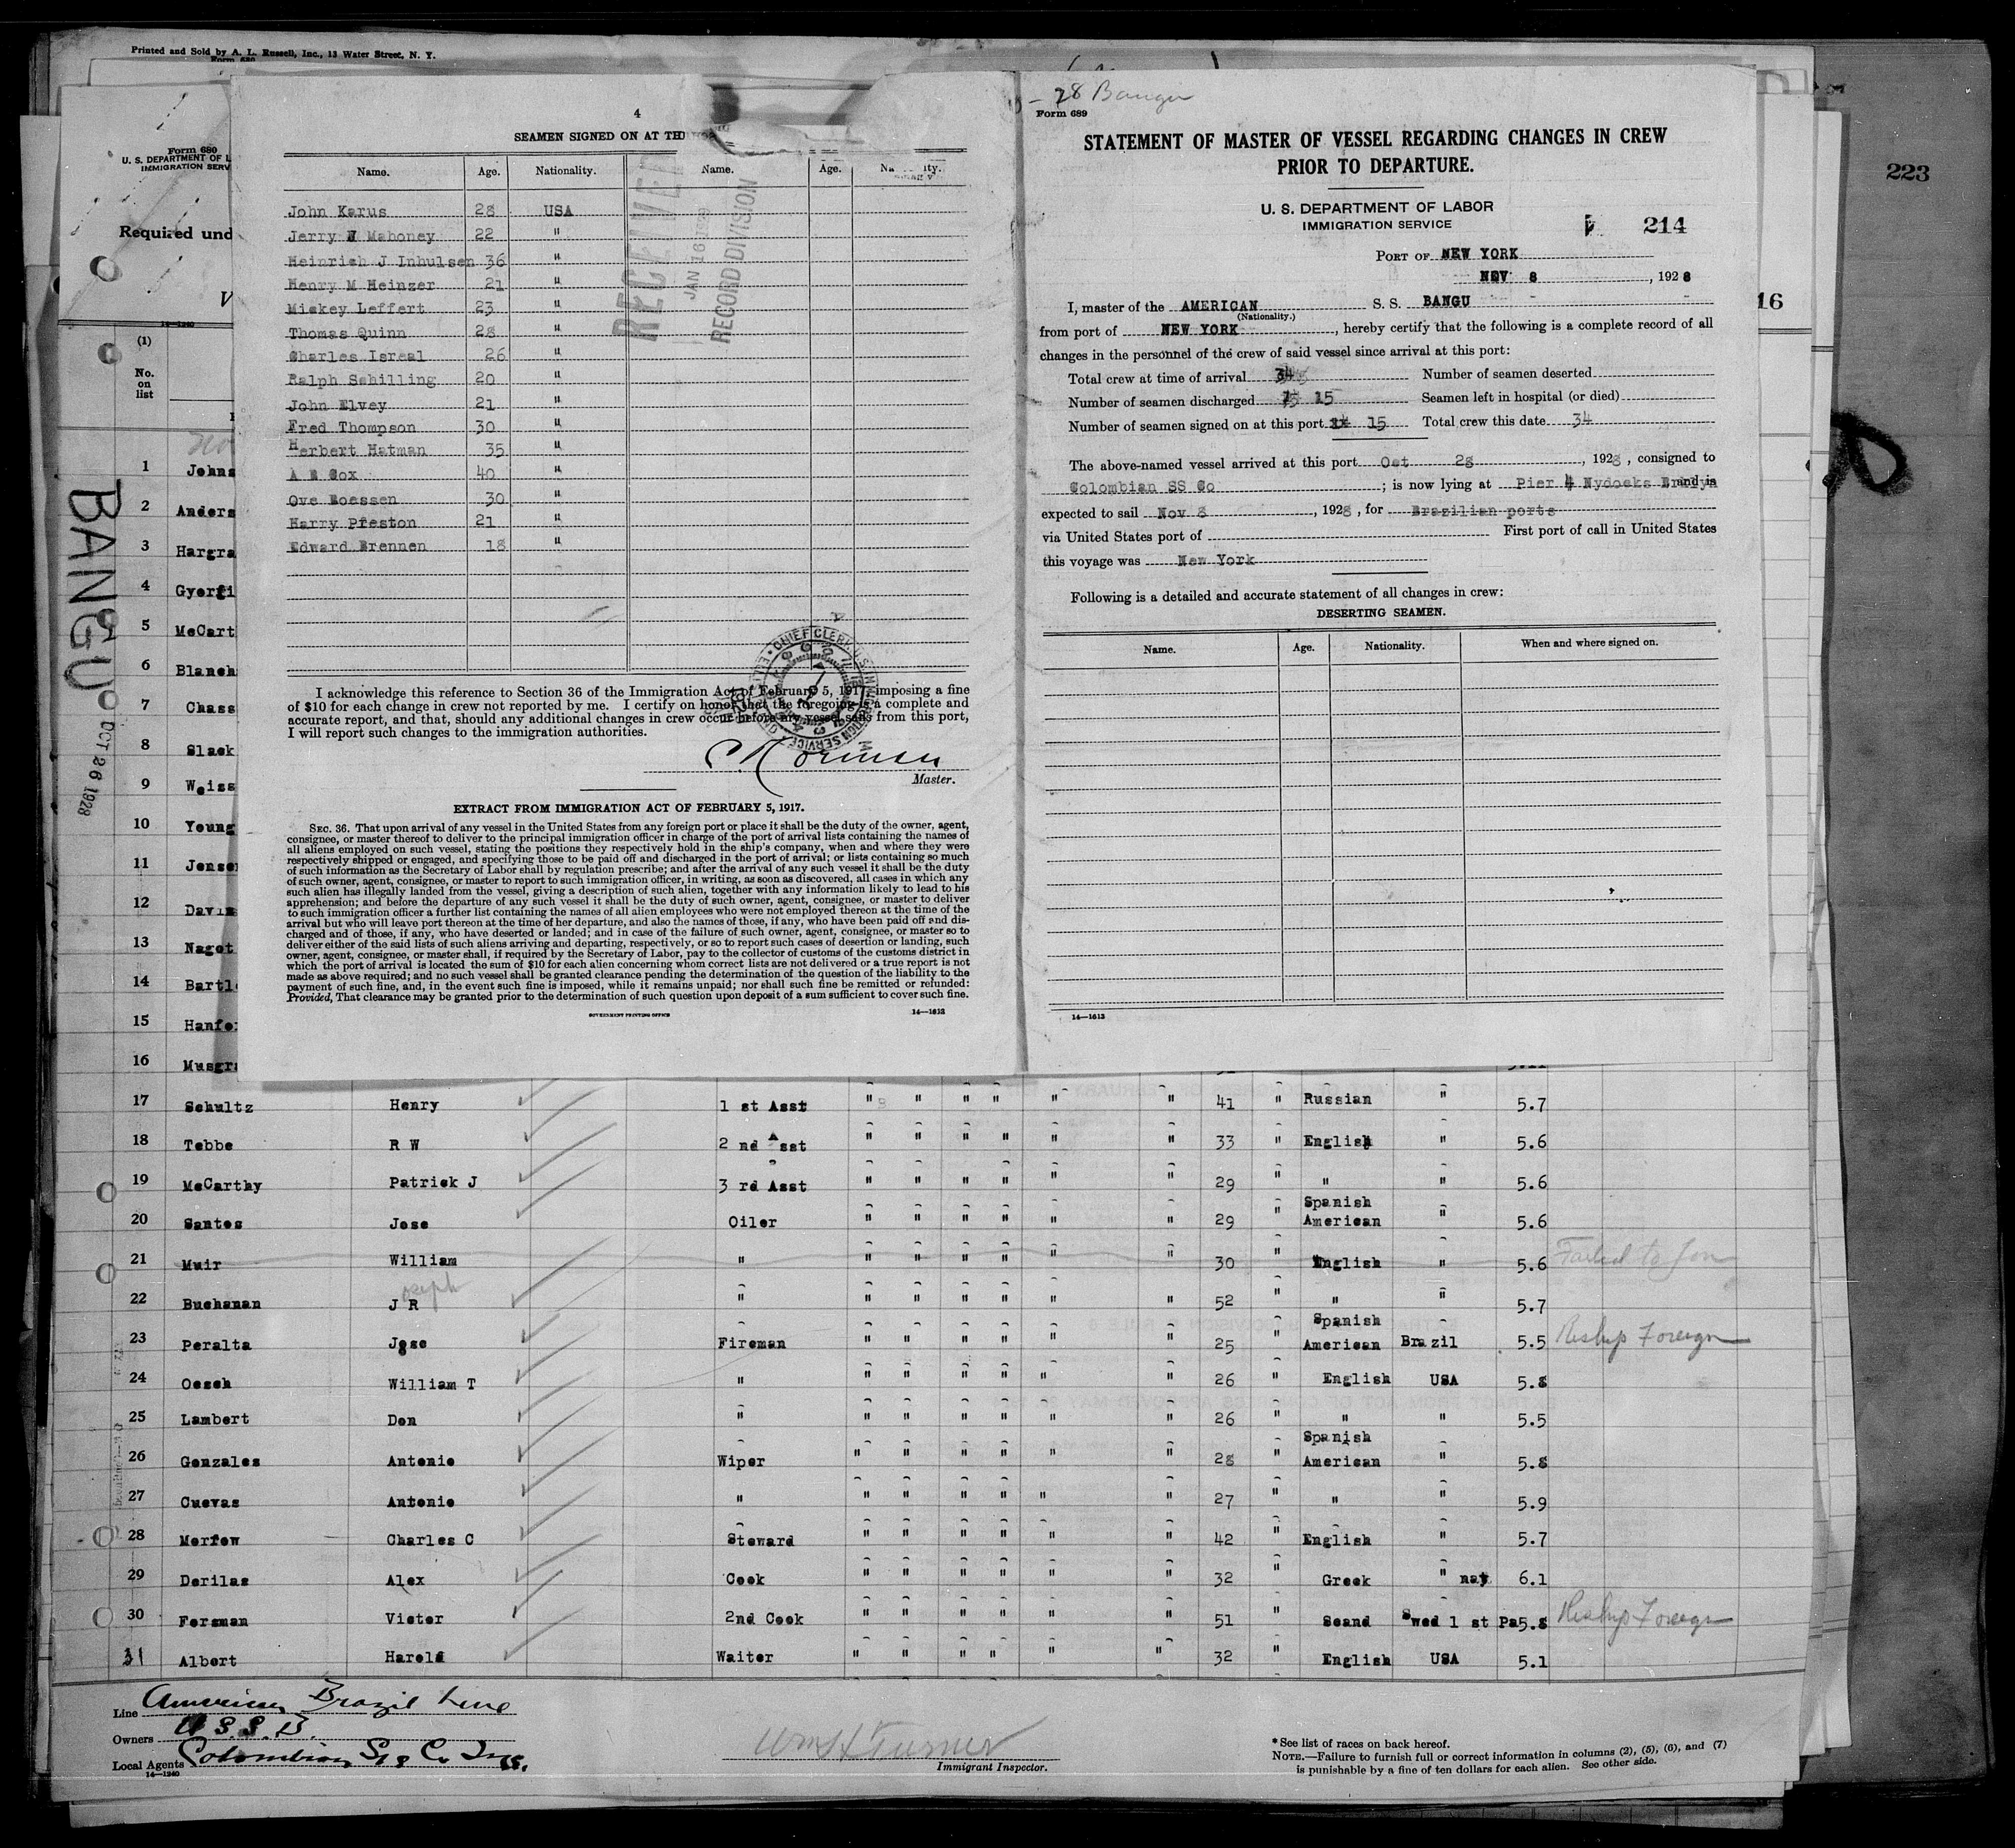 Printed and Sold by A. L. Russell, Inc., 13 Water Street, N. Y.
Form 680
223
Form 680
U. S. DEPARTMENT OF L
IMMIGRATION SERV
Required und
V
14—1240
16
BANGU
OCT 26 1928
4
SEAMEN SIGNED ON AT TH
Name. Age. Nationality. Name. Age. Na ity.
John Karus 28 USA
Jerry W Mahoney 22 "
Heinrich J Inhulsen 36 "
Henry M Heinzer 21 "
Mickey Leffert 23 "
Thomas Quinn 28 "
Charles Isreal 26 "
Ralph Schilling 20 "
John Elvey 21 "
Fred Thompson 30 "
Herbert Hatman 35 "
A E Cox 40 "
Ove Boessen 30 "
Harry Preston 21 "
Edward Brennen 18 "
RECEIVED
JAN 16 1929
RECORD DIVISION
I acknowledge this reference to Section 36 of the Immigration Act of February 5, 1917, imposing a fine
of $10 for each change in crew not reported by me. I certify on honor that the foregoing is a complete and
accurate report, and that, should any additional changes in crew occur before my vessel sails from this port,
I will report such changes to the immigration authorities.
Master.
EXTRACT FROM IMMIGRATION ACT OF FEBRUARY 5, 1917.
SEC. 36. That upon arrival of any vessel in the United States from any foreign port or place it shall be the duty of the owner, agent,
consignee, or master thereof to deliver to the principal immigration officer in charge of the port of arrival lists containing the names of
all aliens employed on such vessel, stating the positions they respectively hold in the ship's company, when and where they were
respectively shipped or engaged, and specifying those to be paid off and discharged in the port of arrival; or lists containing so much
of such information as the Secretary of Labor shall by regulation prescribe; and after the arrival of any such vessel it shall be the duty
of such owner, agent, consignee, or master to report to such immigration officer, in writing, as soon as discovered, all cases in which any
such alien has illegally landed from the vessel, giving a description of such alien, together with any information likely to lead to his
apprehension; and before the departure of any such vessel it shall be the duty of such owner, agent, consignee, or master to deliver
to such immigration officer a further list containing the names of all alien employees who were not employed thereon at the time of the
arrival but who will leave port thereon at the time of her departure, and also the names of those, if any, who have been paid off and dis-
charged and of those, if any, who have deserted or landed; and in case of the failure of such owner, agent, consignee, or master so to
deliver either of the said lists of such aliens arriving and departing, respectively, or so to report such cases of desertion or landing, such
owner, agent, consignee, or master shall, if required by the Secretary of Labor, pay to the collector of customs of the customs district in
which the port of arrival is located the sum of $10 for each alien concerning whom correct lists are not delivered or a true report is not
made as above required; and no such vessel shall be granted clearance pending the determination of the question of the liability to the
payment of such fine, and, in the event such fine is imposed, while it remains unpaid; nor shall such fine be remitted or refunded:
Provided, That clearance may be granted prior to the determination of such question upon deposit of a sum sufficient to cover such fine.
GOVERNMENT PRINTING OFFICE 14—1613
28 Bangu
Form 689
STATEMENT OF MASTER OF VESSEL REGARDING CHANGES IN CREW
PRIOR TO DEPARTURE.
U. S. DEPARTMENT OF LABOR
IMMIGRATION SERVICE
214
PORT OF NEW YORK
NOV 8, 1928
I, master of the AMERICAN S. S. BANGU
(Nationality.)
from port of NEW YORK, hereby certify that the following is a complete record of all
changes in the personnel of the crew of said vessel since arrival at this port:
Total crew at time of arrival 34 Number of seamen deserted
Number of seamen discharged 15 Seamen left in hospital (or died)
Number of seamen signed on at this port 15 Total crew this date 34
The above-named vessel arrived at this port Oct 28, 1928, consigned to
Colombian SS Co; is now lying at Pier 4 Nydocks Brklyn and is
expected to sail Nov 8, 1928, for Brazilian ports
via United States port of First port of call in United States
this voyage was New York
Following is a detailed and accurate statement of all changes in crew:
DESERTING SEAMEN.
Name. Age. Nationality. When and where signed on.
14—1613
(1)
No.
on
list
1 Johns
2 Anders
3 Hargra
4 Gyorfi
5 McCart
6 Blanch
7 Chass
8 Slack
9 Weiss
10 Young
11 Jensen
12 Davis
13 Nagot
14 Bartl
15 Hanfo
16 Musgra
17 Schultz Henry 1 st Asst " " " " " " 41 " Russian " 5.7
18 Tebbe R W 2 nd Asst " " " " " " 33 " English " 5.6
19 McCarthy Patrick J 3 rd Asst " " " " " " 29 " " " 5.6
20 Santos Jose Oiler " " " " " " 29 " Spanish American " 5.6
21 Muir William " " " " " " " 30 " English " 5.6 Failed to Join
22 Buchanan J R oseph " " " " " " " 52 " " " 5.7
23 Peralta Jose Fireman " " " " " " 25 " Spanish American Brazil 5.5 Reship Foreign
24 Oesch William T " " " " " " " 26 " English USA 5.8
25 Lambert Don " " " " " " " 26 " " " 5.5
26 Gonzales Antonio Wiper " " " " " " 28 " Spanish American " 5.8
27 Cuevas Antonio " " " " " " " 27 " " " 5.9
28 Merfow Charles C Steward " " " " " " 42 " English " 5.7
29 Derilas Alex Cook " " " " " " 32 " Greek " nat 6.1
30 Forsman Victor 2nd Cook " " " " " " 51 " Scand Swed 1 st Pa 5.8 Reship Foreign
31 Albert Harold Waiter " " " " " " 32 " English USA 5.1
Line American Brazil Line
Owners U. S. S. B.
Local Agents Colombian SS Co Inc.
14—1240
Wm H Turner
Immigrant Inspector.
* See list of races on back hereof.
NOTE.—Failure to furnish full or correct information in columns (2), (5), (6), and (7)
is punishable by a fine of ten dollars for each alien. See other side.